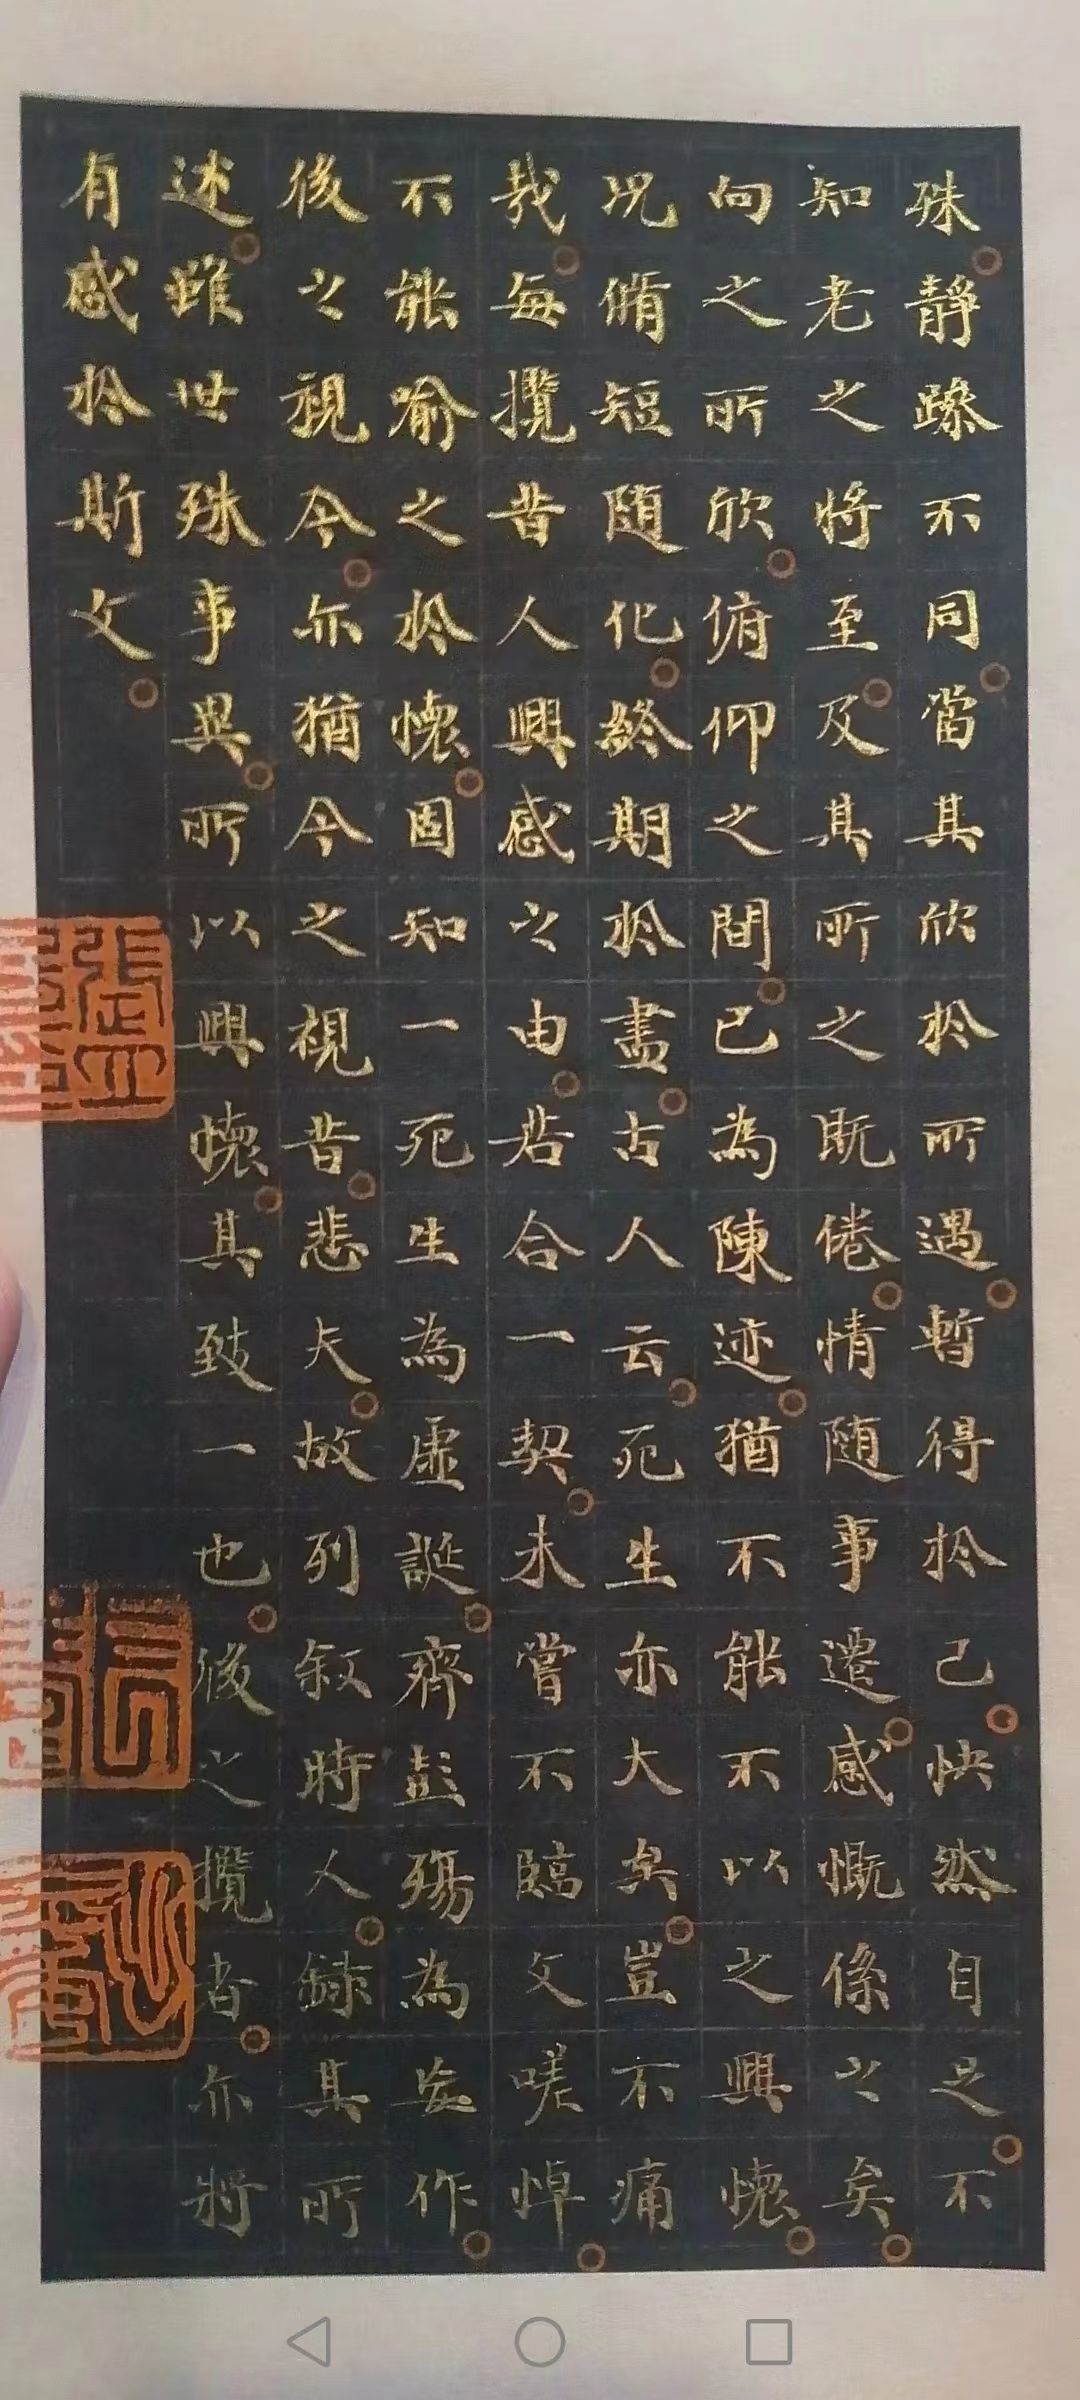 殊静躁不同當其欣於所遇暫得於己怏然自足不
知老之將至及其所之既倦情随事遷感慨係之矣
向之所欣俯仰之間已為陳迹猶不能不以之興懷
况脩短随化終期於盡古人云死生亦大矣豈不痛
哉每攬昔人興感之由若合一契未嘗不臨文嗟悼
不能喻之於懷固知一死生為虛誕齊彭殤為妄作
後之視今亦猶今之視昔悲夫故列叙時人録其所
述雖世殊事異所以興懷其致一也後之攬者亦將
有感於斯文